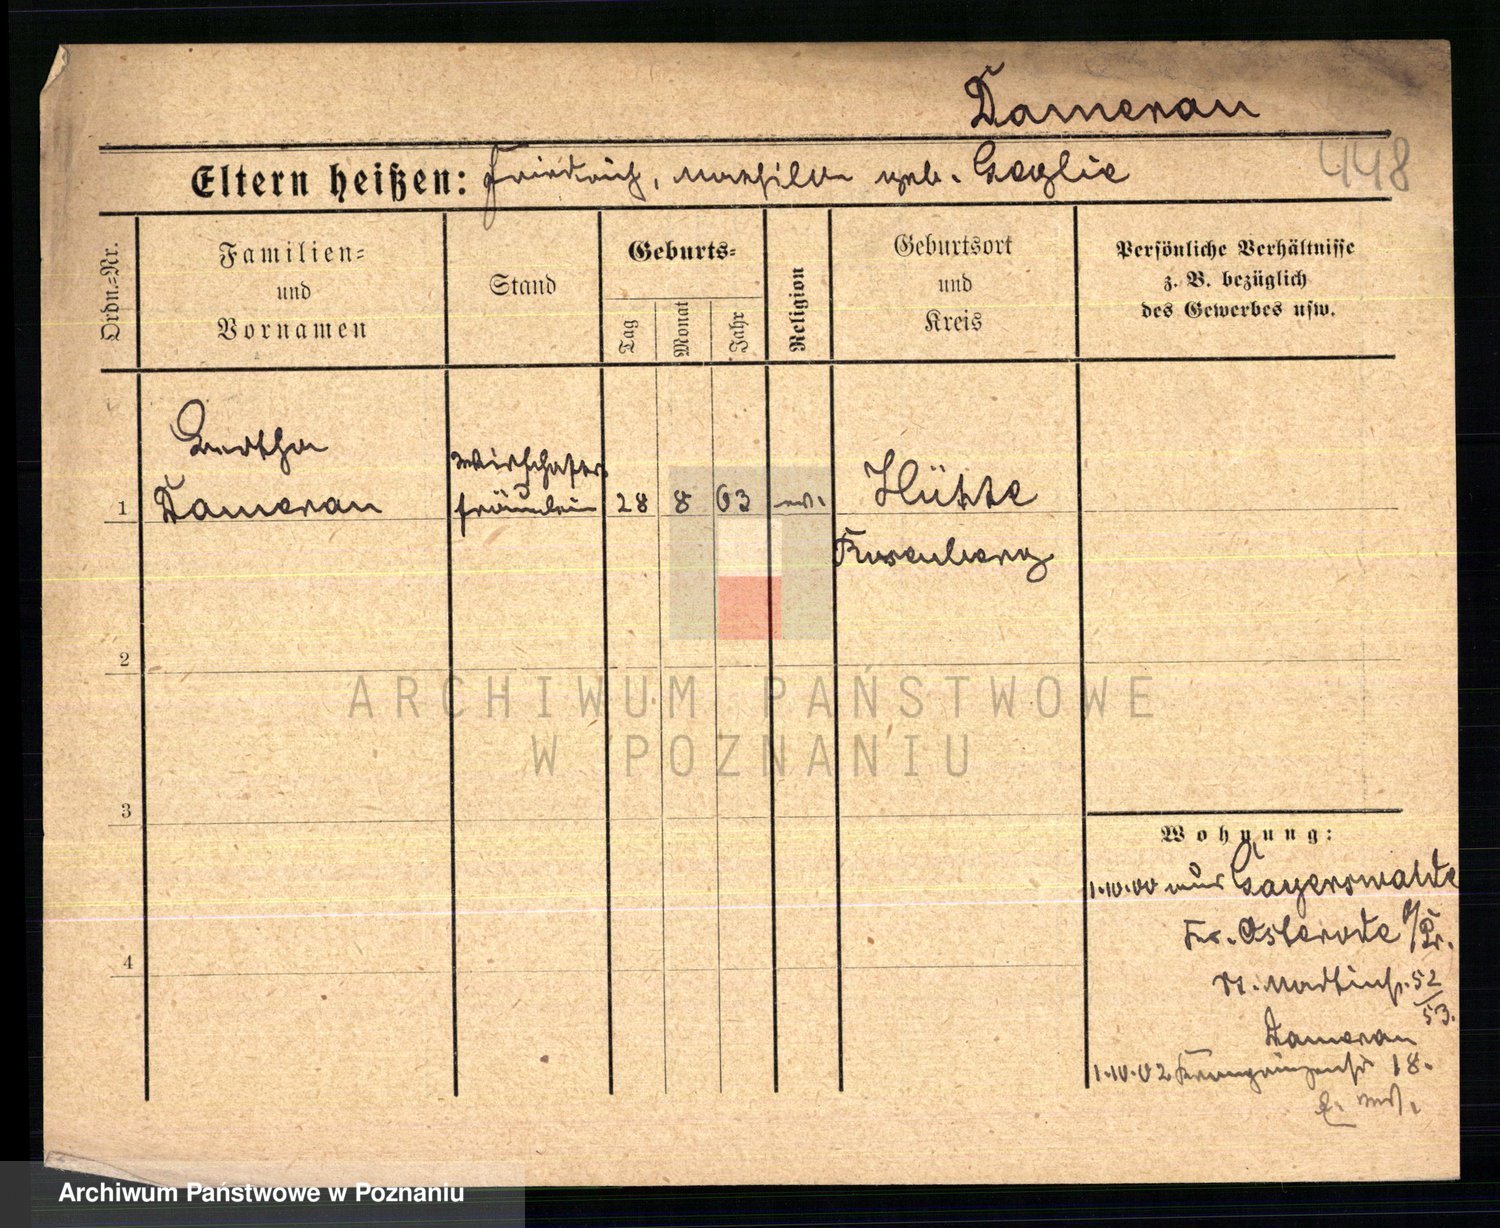 Damerau
448
Eltern heißen: Friedrich, Mathilde geb. Goglie
Ordn.=Nr.
Familien=
und
Vornamen
Stand
Geburts=
Tag
Monat
Jahr
Religion
Geburtsort
und
Kreis
Persönliche Verhältnisse
z. B. bezüglich
des Gewerbes usw.
Bertha
Damerau
Wirthschafts
fräulein
1
28 8 63 ev.
Hütte
Rosenberg
2
3
4
Wohnung:
1.10.00 aus Gayerswalde
Kr. Osterode O/Pr.
St. Martinstr. 52/53.
Damerau
1.10.02 Kronprinzenstr 18.
ARCHIWUM PAŃSTWOWE
W POZNANIU
Archiwum Państwowe w Poznaniu